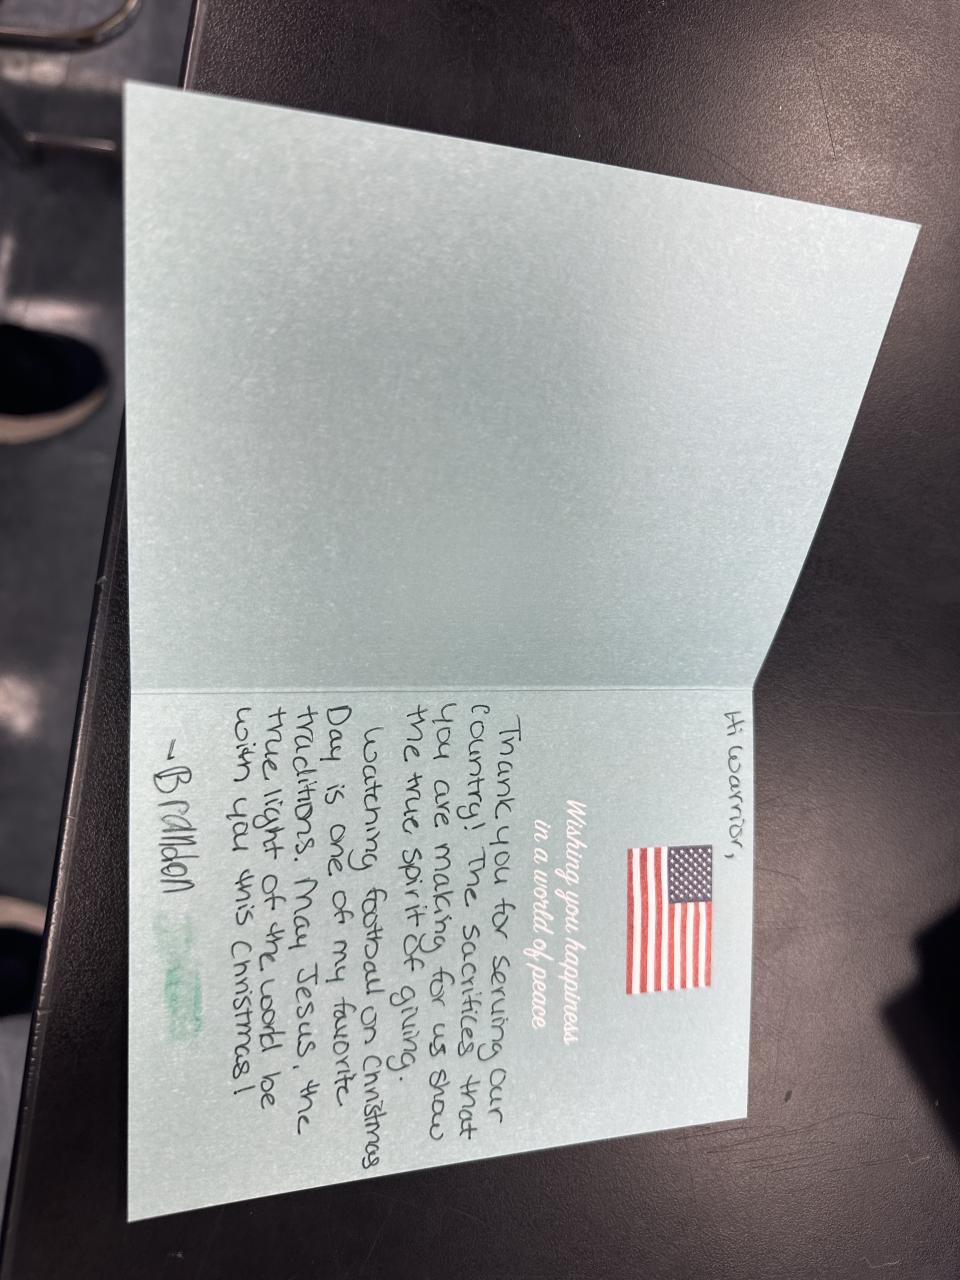 Hi warrior,
Wishing you happiness
in a world of peace
Thank you for serving our
country! The sacrifices that
you are making for us show
the true spirit of giving.
Watching football on Christmas
Day is one of my favorite
traditions. May Jesus, the
true light of the world be
with you this Christmas!
~Brandon